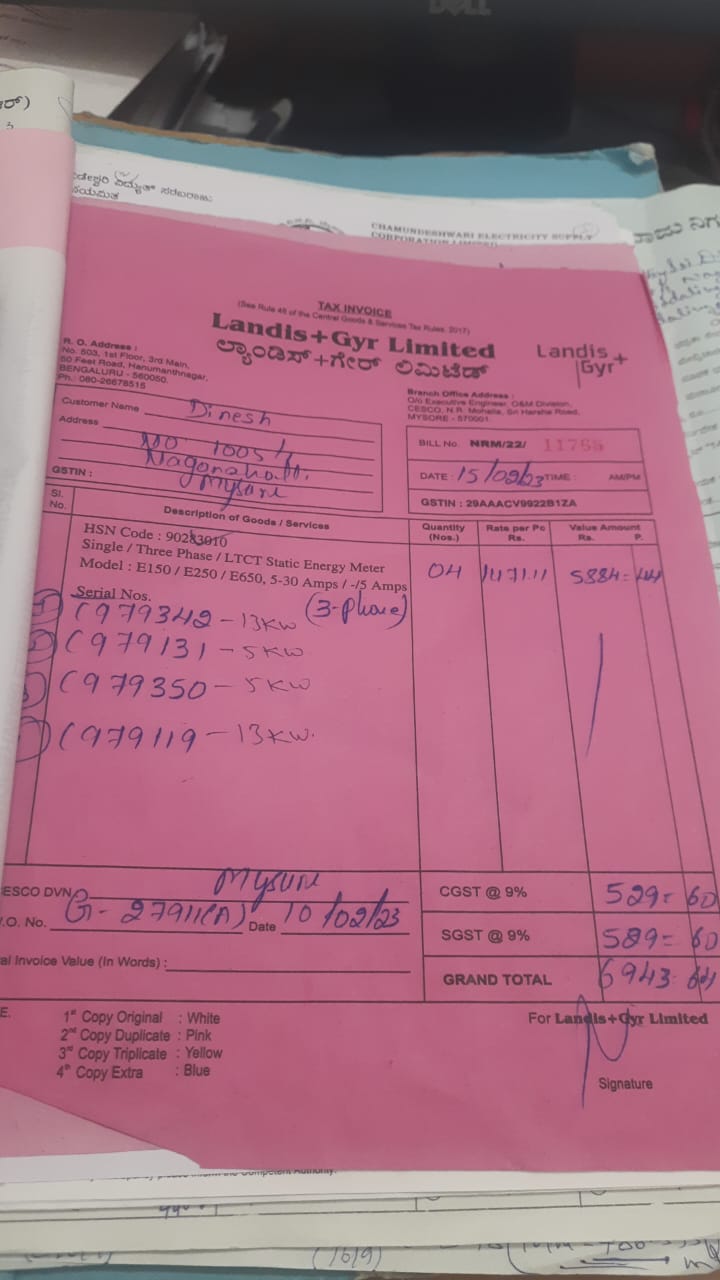 DELL
CHAMUNDESHWARI ELECTRICITY SUPPLY
CORPORATION LIMITED
TAX INVOICE
(See Rule 46 of the Central Goods & Services Tax Rules, 2017)
Landis+Gyr Limited
ಲ್ಯಾಂಡಿಸ್+ಗೇರ್ ಲಿಮಿಟೆಡ್
Landis+
Gyr
R. O. Address :
No. 503, 1st Floor, 3rd Main,
60 Feet Road, Hanumanthnagar,
BENGALURU - 560050.
Ph.: 080-26678515
Branch Office Address :
O/o Executive Engineer, O&M Division,
CESCO, N.R. Mohalla, Sri Harsha Road,
MYSORE - 570001.
Customer Name Dinesh
Address
NO 1005/
Mysore
GSTIN :
BILL No. NRM/22/
DATE : 15/02/23 TIME : AM/PM
GSTIN : 29AAACV9922B1ZA
Sl. No. Description of Goods / Services Quantity (Nos.) Rate per Pc Rs. Value Amount Rs. P.
HSN Code : 90283010
Single / Three Phase / LTCT Static Energy Meter
Model : E150 / E250 / E650, 5-30 Amps / -/5 Amps 04 1471.11 5884=44
Serial Nos. (3-phase)
C979342 - 13KW
C979131 - 5KW
C979350 - 5KW
C979119 - 13KW.
ESCO DVN Mysure
CGST @ 9% 529= 60
.O. No. G- 27911(A) Date 10/02/23
SGST @ 9% 589= 60
al Invoice Value (In Words) :
GRAND TOTAL 6943 64
E. 1st Copy Original : White
2nd Copy Duplicate : Pink
3rd Copy Triplicate : Yellow
4th Copy Extra : Blue
For Landis+Gyr Limited
Signature
(16/9)